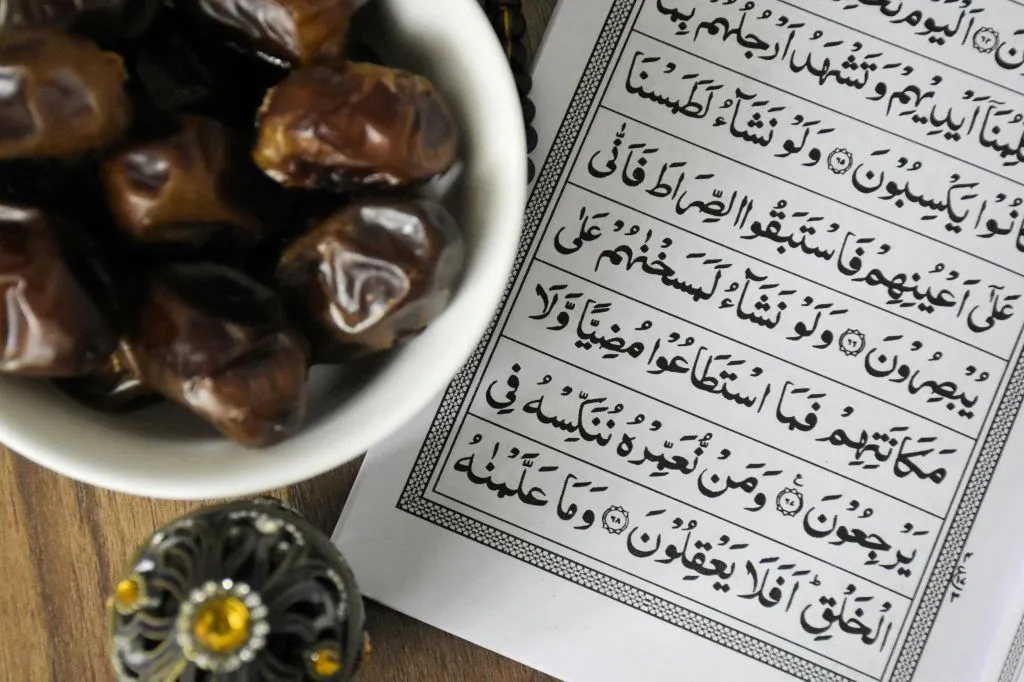 اَلْيَوْمَ
اَيْدِيْهِمْ وَتَشْهَدُ اَرْجُلُهُمْ بِمَا
انُوْا يَكْسِبُوْنَ ۝٦٥ وَلَوْ نَشَآءُ لَطَمَسْنَا
عَلٰٓى اَعْيُنِهِمْ فَاسْتَبَقُوا الصِّرَاطَ فَاَنّٰى
يُبْصِرُوْنَ ۝٦٦ وَلَوْ نَشَآءُ لَمَسَخْنٰهُمْ عَلٰى
مَكَانَتِهِمْ فَمَا اسْتَطَاعُوْا مُضِيًّا وَّلَا
يَرْجِعُوْنَ ۝٦٧ وَمَنْ نُّعَمِّرْهُ نُنَكِّسْهُ فِى
الْخَلْقِ ؕ اَفَلَا يَعْقِلُوْنَ ۝٦٨ وَمَا عَلَّمْنٰهُ